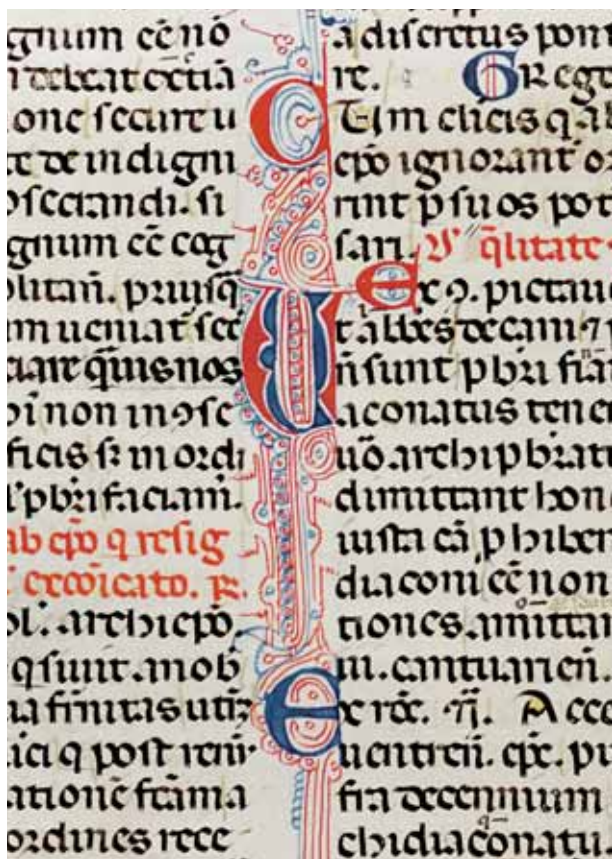 gnum eē nō
debeat
one secure u
te de indigni
secrandi. si
gnum eē cog
olitan̄. priusq̄
m ueniat sec
nos
non in ɔsc
ficis in ordi
pbri faciam.
ab epō q resig
excōicato. R.
ol'. archiepō
q sunt. an ob
ia firmitas
ici q post renū
ationē fcām a
ordines rece
a discretus pont
re. Grego
clicis q ab
epō ignorant or
rint p suos pot
sari. q̄litate
Ex ɔ. pictau
t abbēs decani ⁊ p
n̄ sunt pbri
aconatus tene
uō archipbrat
dimittant hon
iusta cā phiben
diaconi eē non
tiones. amittan
cantuarien̄.
Ex rōe. Acce
uentren̄. epc. pu
fra decennium
chidiaconatu.